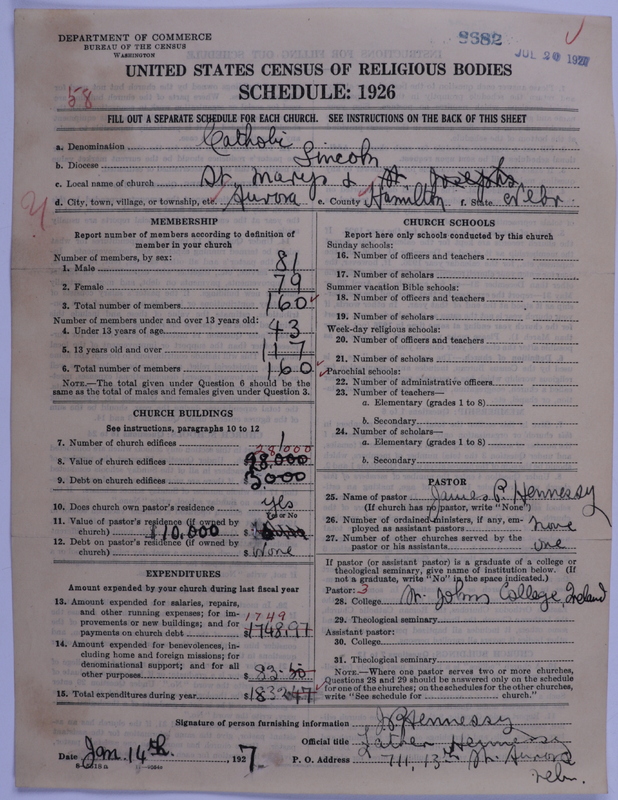 DEPARTMENT OF COMMERCE
BUREAU OF THE CENSUS
WASHINGTON
8682
JUL 20 1927
UNITED STATES CENSUS OF RELIGIOUS BODIES
SCHEDULE: 1926
58
FILL OUT A SEPARATE SCHEDULE FOR EACH CHURCH. SEE INSTRUCTIONS ON THE BACK OF THIS SHEET
a. Denomination Catholic
b. Diocese Lincoln
c. Local name of church St. Marys & St. Josephs
d. City, town, village, or township, etc. Aurora e. County Hamilton f. State Nebr
MEMBERSHIP
Report number of members according to definition of
member in your church
Number of members, by sex:
1. Male 81
2. Female 79
3. Total number of members 160
Number of members under and over 13 years old:
4. Under 13 years of age 43
5. 13 years old and over 117
6. Total number of members 160
NOTE.—The total given under Question 6 should be the
same as the total of males and females given under Question 3.
CHURCH BUILDINGS
See instructions, paragraphs 10 to 12
7. Number of church edifices 1
28000
8. Value of church edifices 28,000
9. Debt on church edifices 5,000
10. Does church own pastor's residence yes
Yes or No
11. Value of pastor's residence (if owned by
church) $10,000 $
12. Debt on pastor's residence (if owned by
church) $ None
EXPENDITURES
Amount expended by your church during last fiscal year
13. Amount expended for salaries, repairs,
and other running expenses; for im-
provements or new buildings; and for
payments on church debt $1748.97
1749
14. Amount expended for benevolences, in-
cluding home and foreign missions; for
denominational support; and for all
other purposes $ 83.50
15. Total expenditures during year $1832.47
CHURCH SCHOOLS
Report here only schools conducted by this church
Sunday schools:
16. Number of officers and teachers
17. Number of scholars
Summer vacation Bible schools:
18. Number of officers and teachers
19. Number of scholars
Week-day religious schools:
20. Number of officers and teachers
21. Number of scholars
Parochial schools:
22. Number of administrative officers
23. Number of teachers—
a. Elementary (grades 1 to 8)
b. Secondary
24. Number of scholars—
a. Elementary (grades 1 to 8)
b. Secondary
PASTOR
25. Name of pastor James P. Hennessy
(If church has no pastor, write "None")
26. Number of ordained ministers, if any, em-
ployed as assistant pastors None
27. Number of other churches served by the
pastor or his assistants one
If pastor (or assistant pastor) is a graduate of a college or
theological seminary, give name of institution below. (If
not a graduate, write "No" in the space indicated.)
Pastor: 3
28. College St. Johns College, Ireland
29. Theological seminary
Assistant pastor:
30. College
31. Theological seminary
NOTE.—Where one pastor serves two or more churches,
Questions 28 and 29 should be answered only on the schedule
for one of the churches; on the schedules for the other churches,
write "See schedule for church."
Signature of person furnishing information J P Hennessy
Official title Father Hennessy
Date Jan. 14th, 1927 P. O. Address 711, 13th St. Aurora
Nebr.